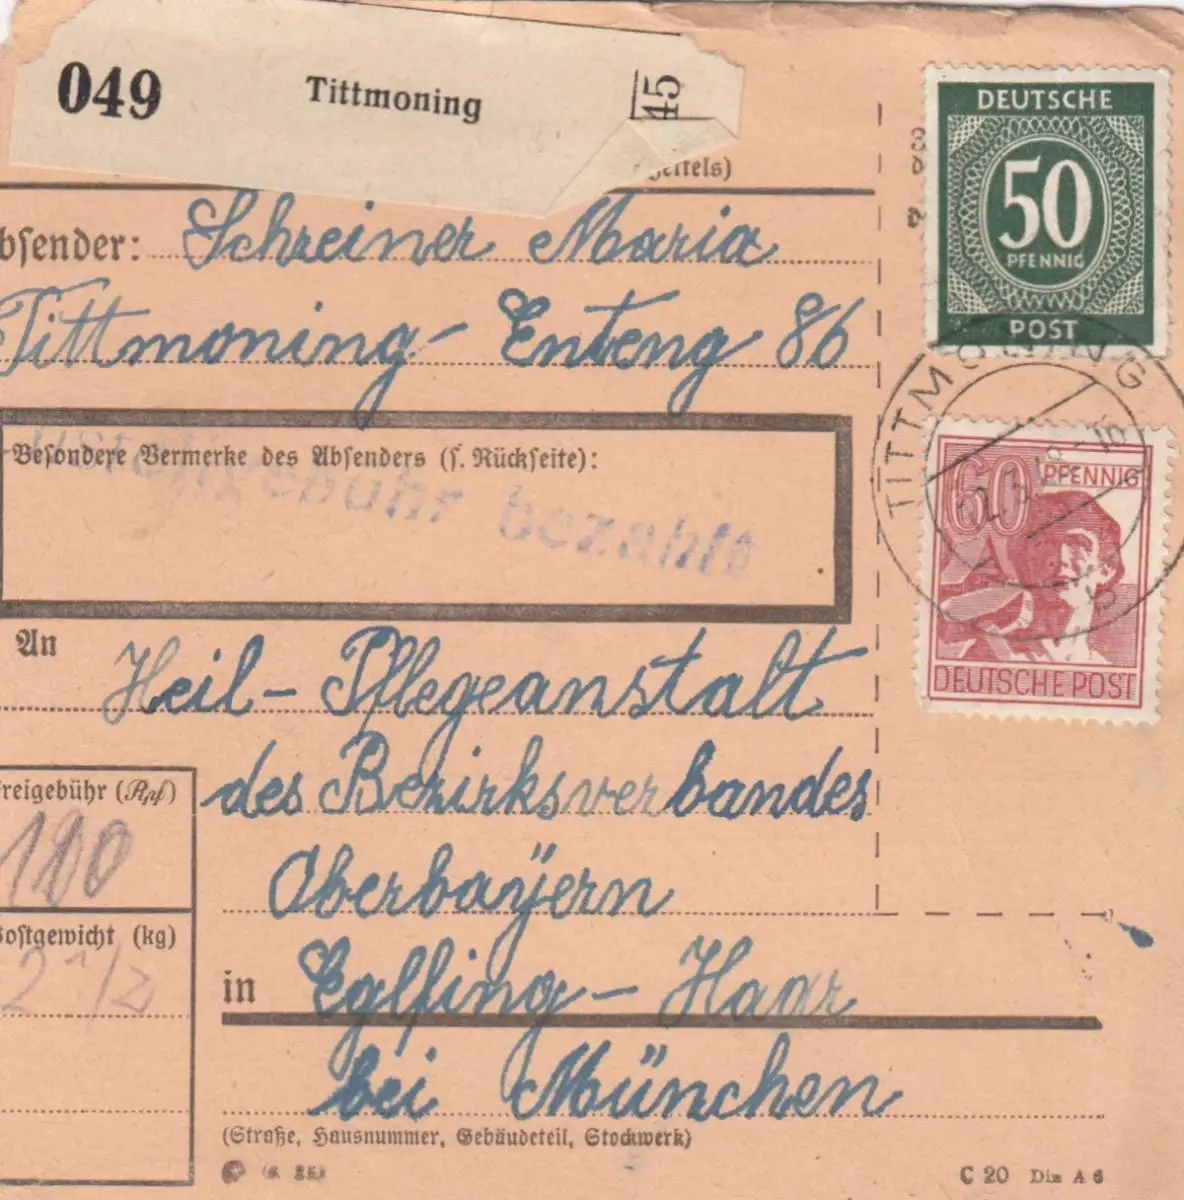 049 Tittmoning 45
gettels)
DEUTSCHE
50
PFENNIG
POST
bsender: Schreiner Maria
Tittmoning- Enteng 86
TITTMONING
12.3.48-16
b
60 PFENNIG
DEUTSCHE POST
Besondere Vermerke des Absenders (s. Rückseite):
ustellgebühr bezahlt
An Heil-Pflegeanstalt
des Bezirksverbandes
Oberbayern
in Eglfing-Haar
bei München
(Straße, Hausnummer, Gebäudeteil, Stockwerk)
reigebühr (Rpf)
100
Postgewicht (kg)
2 1/2
C 20 Din A 6